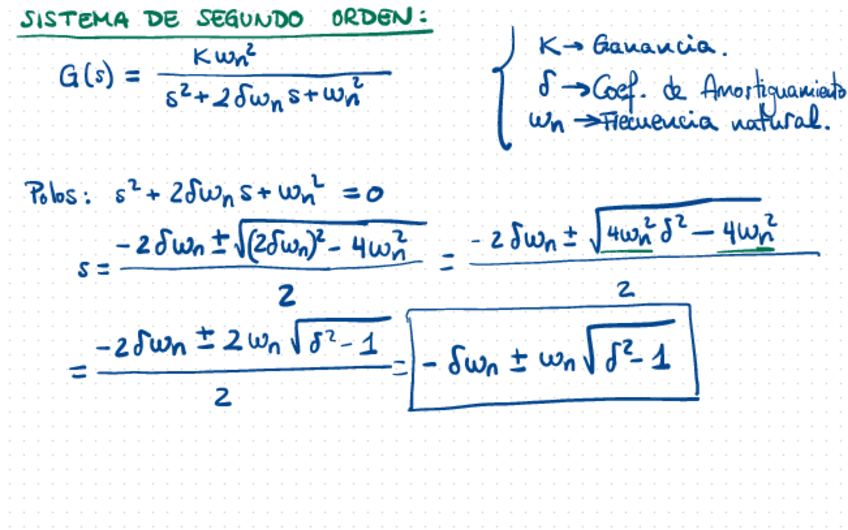 SISTEMA DE SEGUNDO ORDEN:
G(s) = Kωn² / s² + 2δωn s + ωn²
K → Ganancia.
δ → Coef. de Amortiguamiento
ωn → Frecuencia natural.
Polos: s² + 2δωn s + ωn² = 0
s = -2δωn ± √(2δωn)² - 4ωn² / 2 = -2δωn ± √4ωn²δ² - 4ωn² / 2
= -2δωn ± 2ωn √δ² - 1 / 2 = -δωn ± ωn √δ² - 1